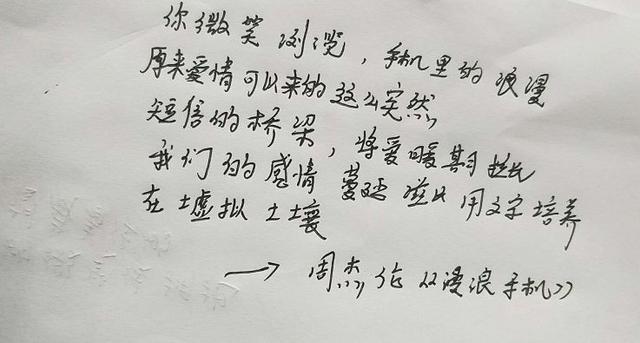 你微笑浏览，手机里的浪漫
原来爱情可以来的这么突然
短信的桥梁，将爱暖期拉长
我们的感情 蔓延滋长 用文字培养
在土虚拟土壤
→ 周杰伦《漫浪手机》